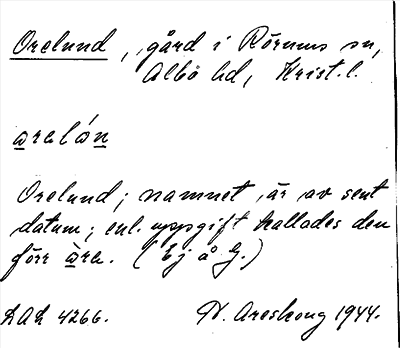 Orelund, gård i Rörums sn,
Albo hd, Krist. l.
arelán
Orelund; namnet är av sent
datum; enl. uppgift kallades den
förr àra. (Ej å G.)
LAL 4266. N. Areskoug 1944.